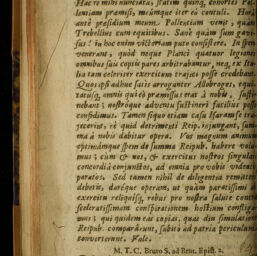 Hac re mihi nunciata, statim quinq, cohortes Pol-
lentiam præmisi, meúmque iter eò contuli. Horâ
antè præsidium meum. Pollentiam venit, quàm
Trebellius cum equitibus. Sanè quàm sum gavi-
sus: in hoc enim victoriam puto consistere. In spem
venerant, quòd neque Planci quatuor legiones
omnibus suis copiis pares arbitrabantur, neq, ex Ita-
lia tam celeriter exercitum trajici posse credebant.
Quos ipsi adhuc satis arroganter Allobroges, equi-
tatúsq, omnis qui eò præmissus erat à nobis, susti-
nebant: nostróque adventu sustineri faciliùs posse
confidimus. Tamen siquo etiam casu Isaram se tra-
jecerint, ne quid detrimenti Reip. injungant, sum-
ma à nobis dabitur opera. Vos magnum animum
optimámque spem de summa Reipub. habere volu-
mus; cùm & nos, & exercitus nostros singulari
concordiâ conjunctos, ad omnia pro vobis videatis
paratos. Sed tamen nihil de diligentia remittere
debetis, daréque operam, ut quàm paratissimi ab
exercitu reliquísq, rebus pro nostra salute contra
sceleratissimam conspirationem hostium confliga-
mus; qui quidem eas copias, quas diu simulatione
Reipub. comparârunt, subitò ad patriæ periculum
converterunt. Vale.
M. T. C. Bruto S. ad Brut. Epist. 2.